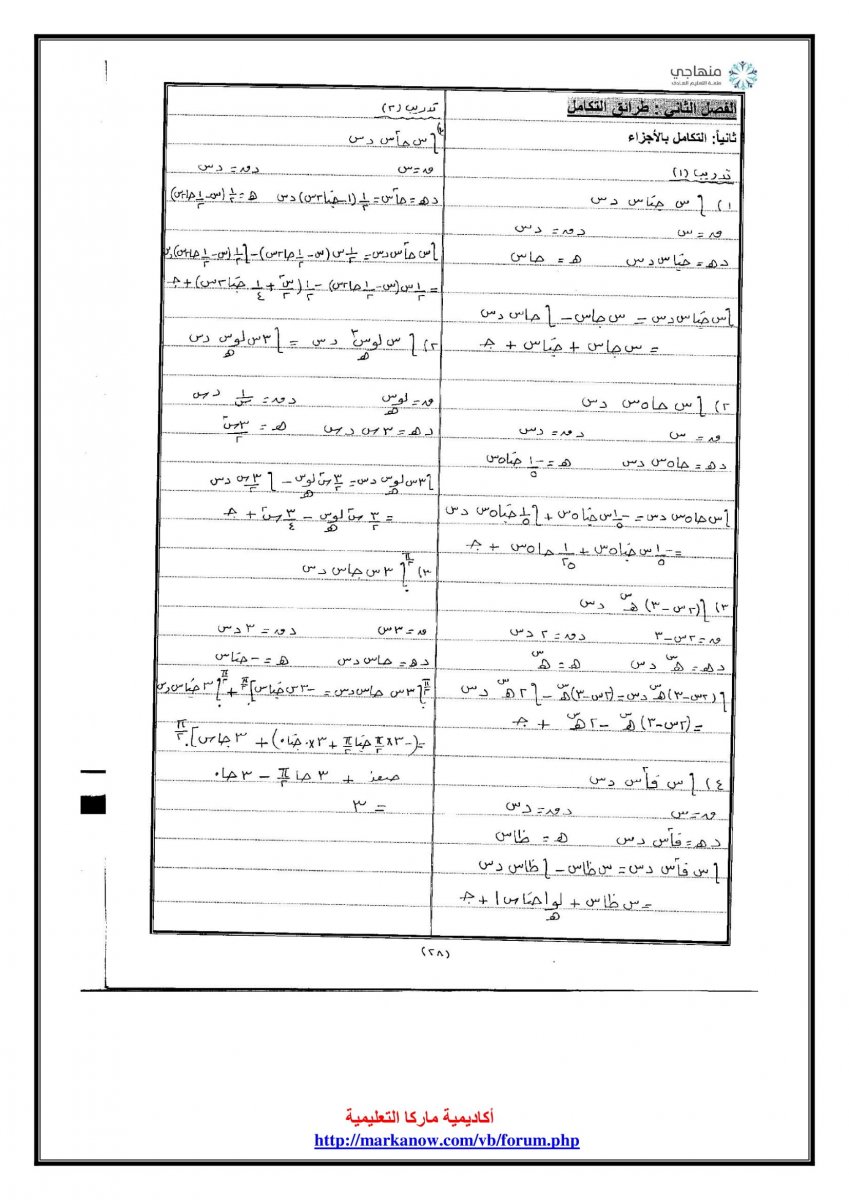 منهاجي
متعة التعليم الهادف
الفصل الثاني : طرائق التكامل
ثانياً: التكامل بالأجزاء
تدريب (١)
١) ∫ س جتاس دس
ن = س دن = دس
دهـ = جتاس دس هـ = جاس
∫ س جتاس دس = س جاس − ∫ جاس دس
= س جاس + جتاس + جـ
٢) ∫ س جا٥س دس
ن = س دن = دس
دهـ = جا٥س دس هـ = −١/٥ جتا٥س
∫ س جا٥س دس = −١/٥ س جتا٥س + ∫ ١/٥ جتا٥س دس
= −١/٥ س جتا٥س + ١/٢٥ جا٥س + جـ
٣) ∫ (٢س − ٣) هـ^س دس
ن = ٢س − ٣ دن = ٢ دس
دهـ = هـ^س دس هـ = هـ^س
∫ (٢س − ٣) هـ^س دس = (٢س − ٣) هـ^س − ∫ ٢ هـ^س دس
= (٢س − ٣) هـ^س − ٢ هـ^س + جـ
٤) ∫ س قا²س دس
ن = س دن = دس
دهـ = قا²س دس هـ = ظاس
∫ س قا²س دس = س ظاس − ∫ ظاس دس
= س ظاس + لو_هـ |جتاس| + جـ
تدريب (٢)
∫ س جا²س دس
ن = س دن = دس
دهـ = جا²س = ١/٢ (١ − جتا٢س) دس هـ = ١/٢ (س − ١/٢ جا٢س)
∫ س جا²س دس = ١/٢ س (س − ١/٢ جا٢س) − ∫ ١/٢ (س − ١/٢ جا٢س) دس
= ١/٢ س (س − ١/٢ جا٢س) − ١/٢ (س²/٢ + ١/٤ جتا٢س) + جـ
٢) ∫ س لو_هـ س³ دس = ∫ ٣س لو_هـ س دس
ن = لو_هـ س دن = ١/س دس
دهـ = ٣س دس هـ = ٣س²/٢
∫ ٣س لو_هـ س دس = ٣/٢ س² لو_هـ س − ∫ ٣/٢ س دس
= ٣/٢ س² لو_هـ س − ٣/٤ س² + جـ
٣) ∫ ٣س جاس دس
ن = ٣س دن = ٣ دس
دهـ = جاس دس هـ = −جتاس
∫ ٣س جاس دس = −٣س جتاس] + ∫ ٣ جتاس دس
= (−٣ × π/٢ جتا π/٢ + ٣ × ٠ جتا٠) + ٣ جاس]
صفر + ٣ جا π/٢ − ٣ جا٠
= ٣
(٢٨)
أكاديمية ماركا التعليمية
http://markanow.com/vb/forum.php